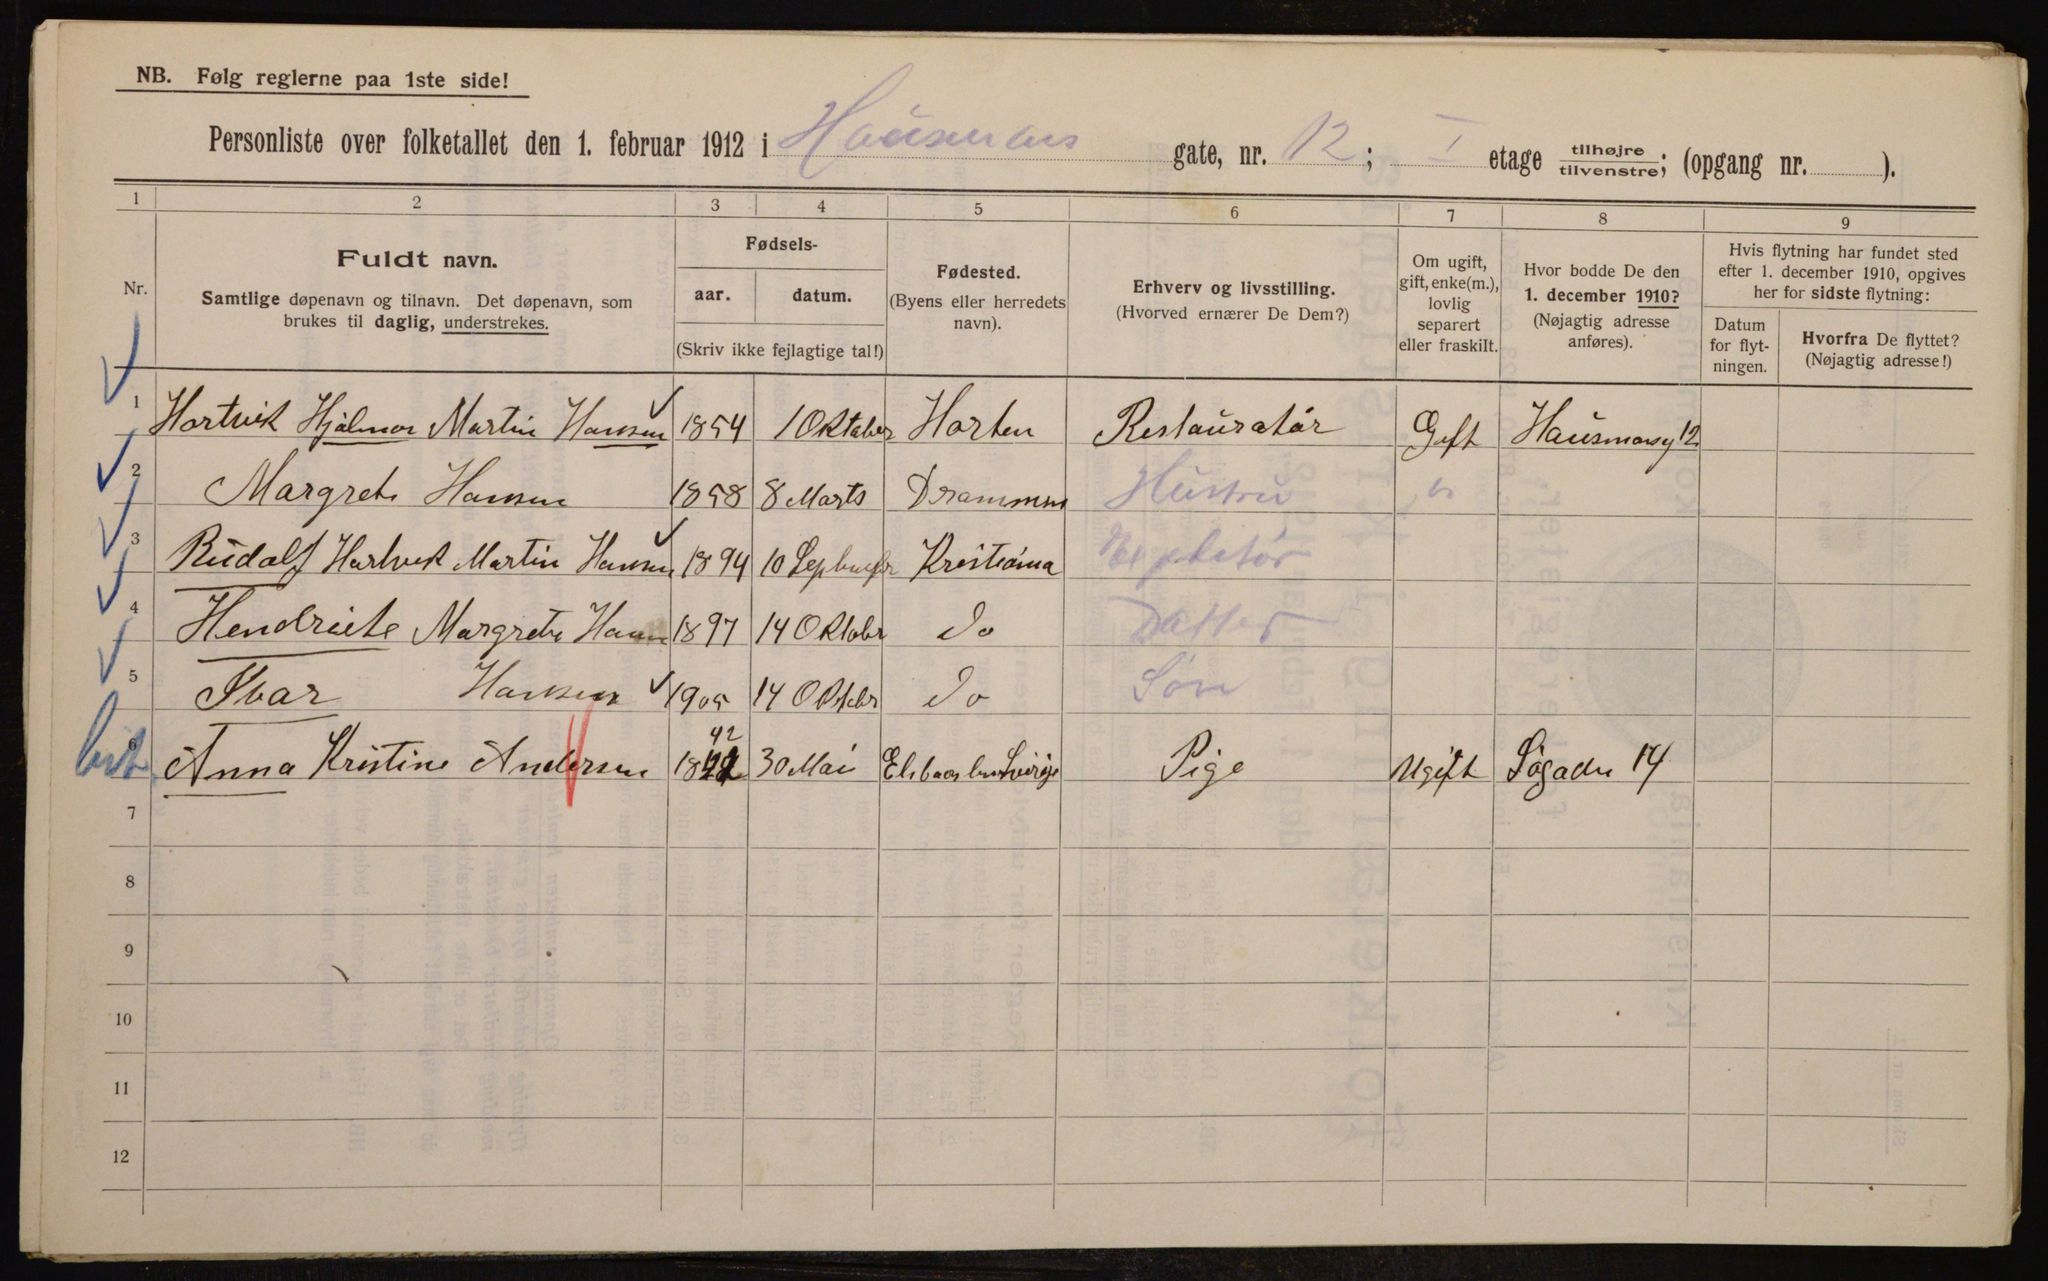 NB. Følg reglerne paa 1ste side!
Personliste over folketallet den 1. februar 1912 i Hausmans gate, nr. 12; I etage tilhøjre/tilvenstre; (opgang nr. ).
1 2 3 4 5 6 7 8 9
Nr.
Fuldt navn.
Samtlige døpenavn og tilnavn. Det døpenavn, som
brukes til daglig, understrekes.
Fødsels-
aar. datum.
(Skriv ikke fejlagtige tal!)
Fødested.
(Byens eller herredets
navn).
Erhverv og livsstilling.
(Hvorved ernærer De Dem?)
Om ugift,
gift, enke(m.),
lovlig
separert
eller fraskilt.
Hvor bodde De den
1. december 1910?
(Nøjagtig adresse
anføres).
Hvis flytning har fundet sted
efter 1. december 1910, opgives
her for sidste flytning:
Datum
for flyt-
ningen.
Hvorfra De flyttet?
(Nøjagtig adresse!)
1 Hartvik Hjalmar Martin Hansen 1854 1 Oktober Horten Restauratør Gift Hausmansg 12
2 Margrete Hansen 1858 8 Marts Drammen Hustru "
3 Rudolf Hartvik Martin Hansen 1894 10 September Kristiania
4 Hendriete Margrete Hansen 1897 14 Oktober Do Datter
5 Ivar Hansen 1905 14 Oktober Do Søn
6 Anna Kristine Andersen 1842 30 Mai Pige Ugift Søgaden 14
7
8
9
10
11
12